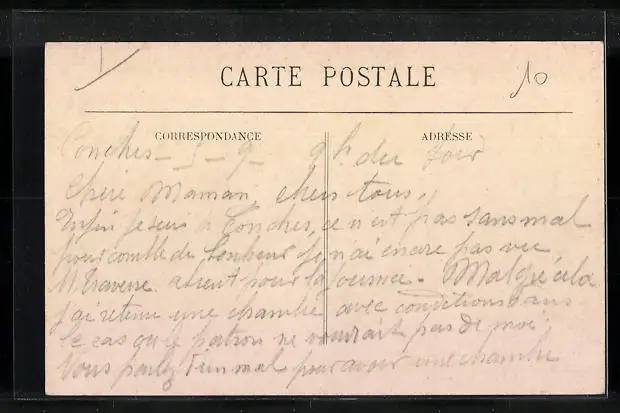 10
CARTE POSTALE
CORRESPONDANCE
ADRESSE
Conches - 5 - 9 - 9 h. du soir
Chère Maman, chers tous,
Enfin je suis à Conches, ce n'est pas sans mal
pour comble de je n'ai encore pas vu
M. absent pour la journée. Malgré cela
j'ai retenu une chambre avec conditions dans
le cas que le patron ne voudrait pas de moi,
Vous parlez d'un mal pour avoir une chambre